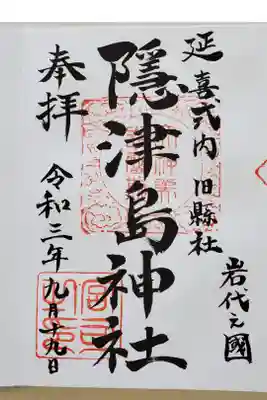 岩代之國
延喜式内 旧縣社
隠津島神社
奉拝
令和三年九月十九日